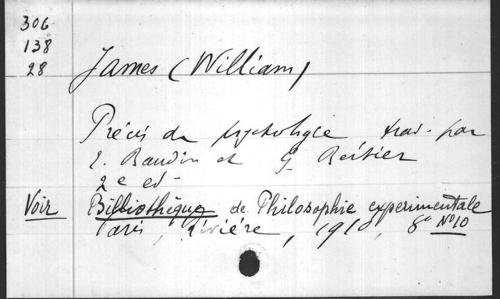 306
138
28
James (William)
Précis de psychologie trad. par
E. Baudin et G. Bertier
2e ed-
Voir Bibliothèque de Philosophie experimentale
Paris, Rivière, 1910, 8° No 10